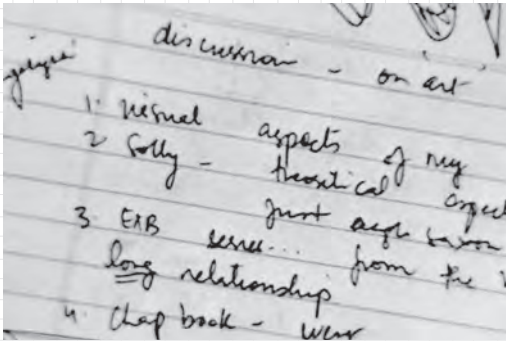 discussion - on art
1. visual aspects of my
2 Solly - theoretical aspect
just
3. EXB series... from the
long relationship
4. Chap book -